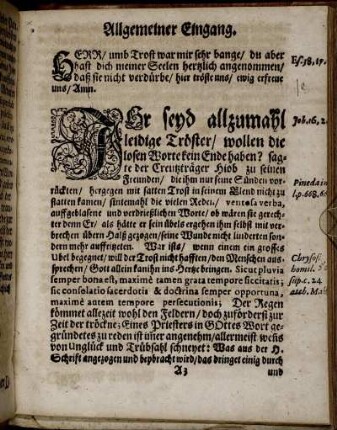 Allgemeiner Eingang.
HERR/ umb Trost war mir sehr bange/ du aber
hast dich meiner Seelen hertzlich angenommen/
daß sie nicht verdürbe/ hier tröste uns/ ewig erfreue
uns/ Amn.
Es. 38, 17.
IHr seyd allzumahl
leidige Tröster/ wollen die
losen Worte kein Ende haben? sag-
te der Creutzträger Hiob zu seinen
Freunden/ die ihm nur seine Sünden vor-
rückten/ hergegen mit satten Trost in seinem Elend nicht zu
statten kamen/ sintemahl die vielen Reden/ ventosa verba,
auffgeblasene und verdrießlichen Worte/ ob wären sie gerech-
ter denn Er/ als hätte er sein übels ergehen ihm selbst mit ver-
brechen übern Halß gezogen/ seine Wunde nicht linderten son-
dern mehr auffritzeten. War ists/ wenn einem ein grosses
Ubel begegnet/ will der Trost nicht hafften/ den Menschen aus-
sprechen/ Gott allein kan ihn ins Hertze bringen. Sicut pluvia
semper bona est, maximè tamen grata tempore siccitatis;
sic consolatio sacerdotis & doctrina semper opportuna,
maximè autem tempore persecutionis; Der Regen
kömmet allezeit wohl den Feldern/ doch zuförderst zur
Zeit der tröckne; Eines Priesters in GOttes Wort ge-
gründetes zu reden ist im̃er angenehm/ allermeist weñs
von Unglück und Trübsahl schneyet: Was aus der H.
Schrifft angezogen und beybracht wird/ das dringet einig durch
Job. 16, 2.
Pineda in
Chrysost.
homil.
sup. c. 24
A3
und